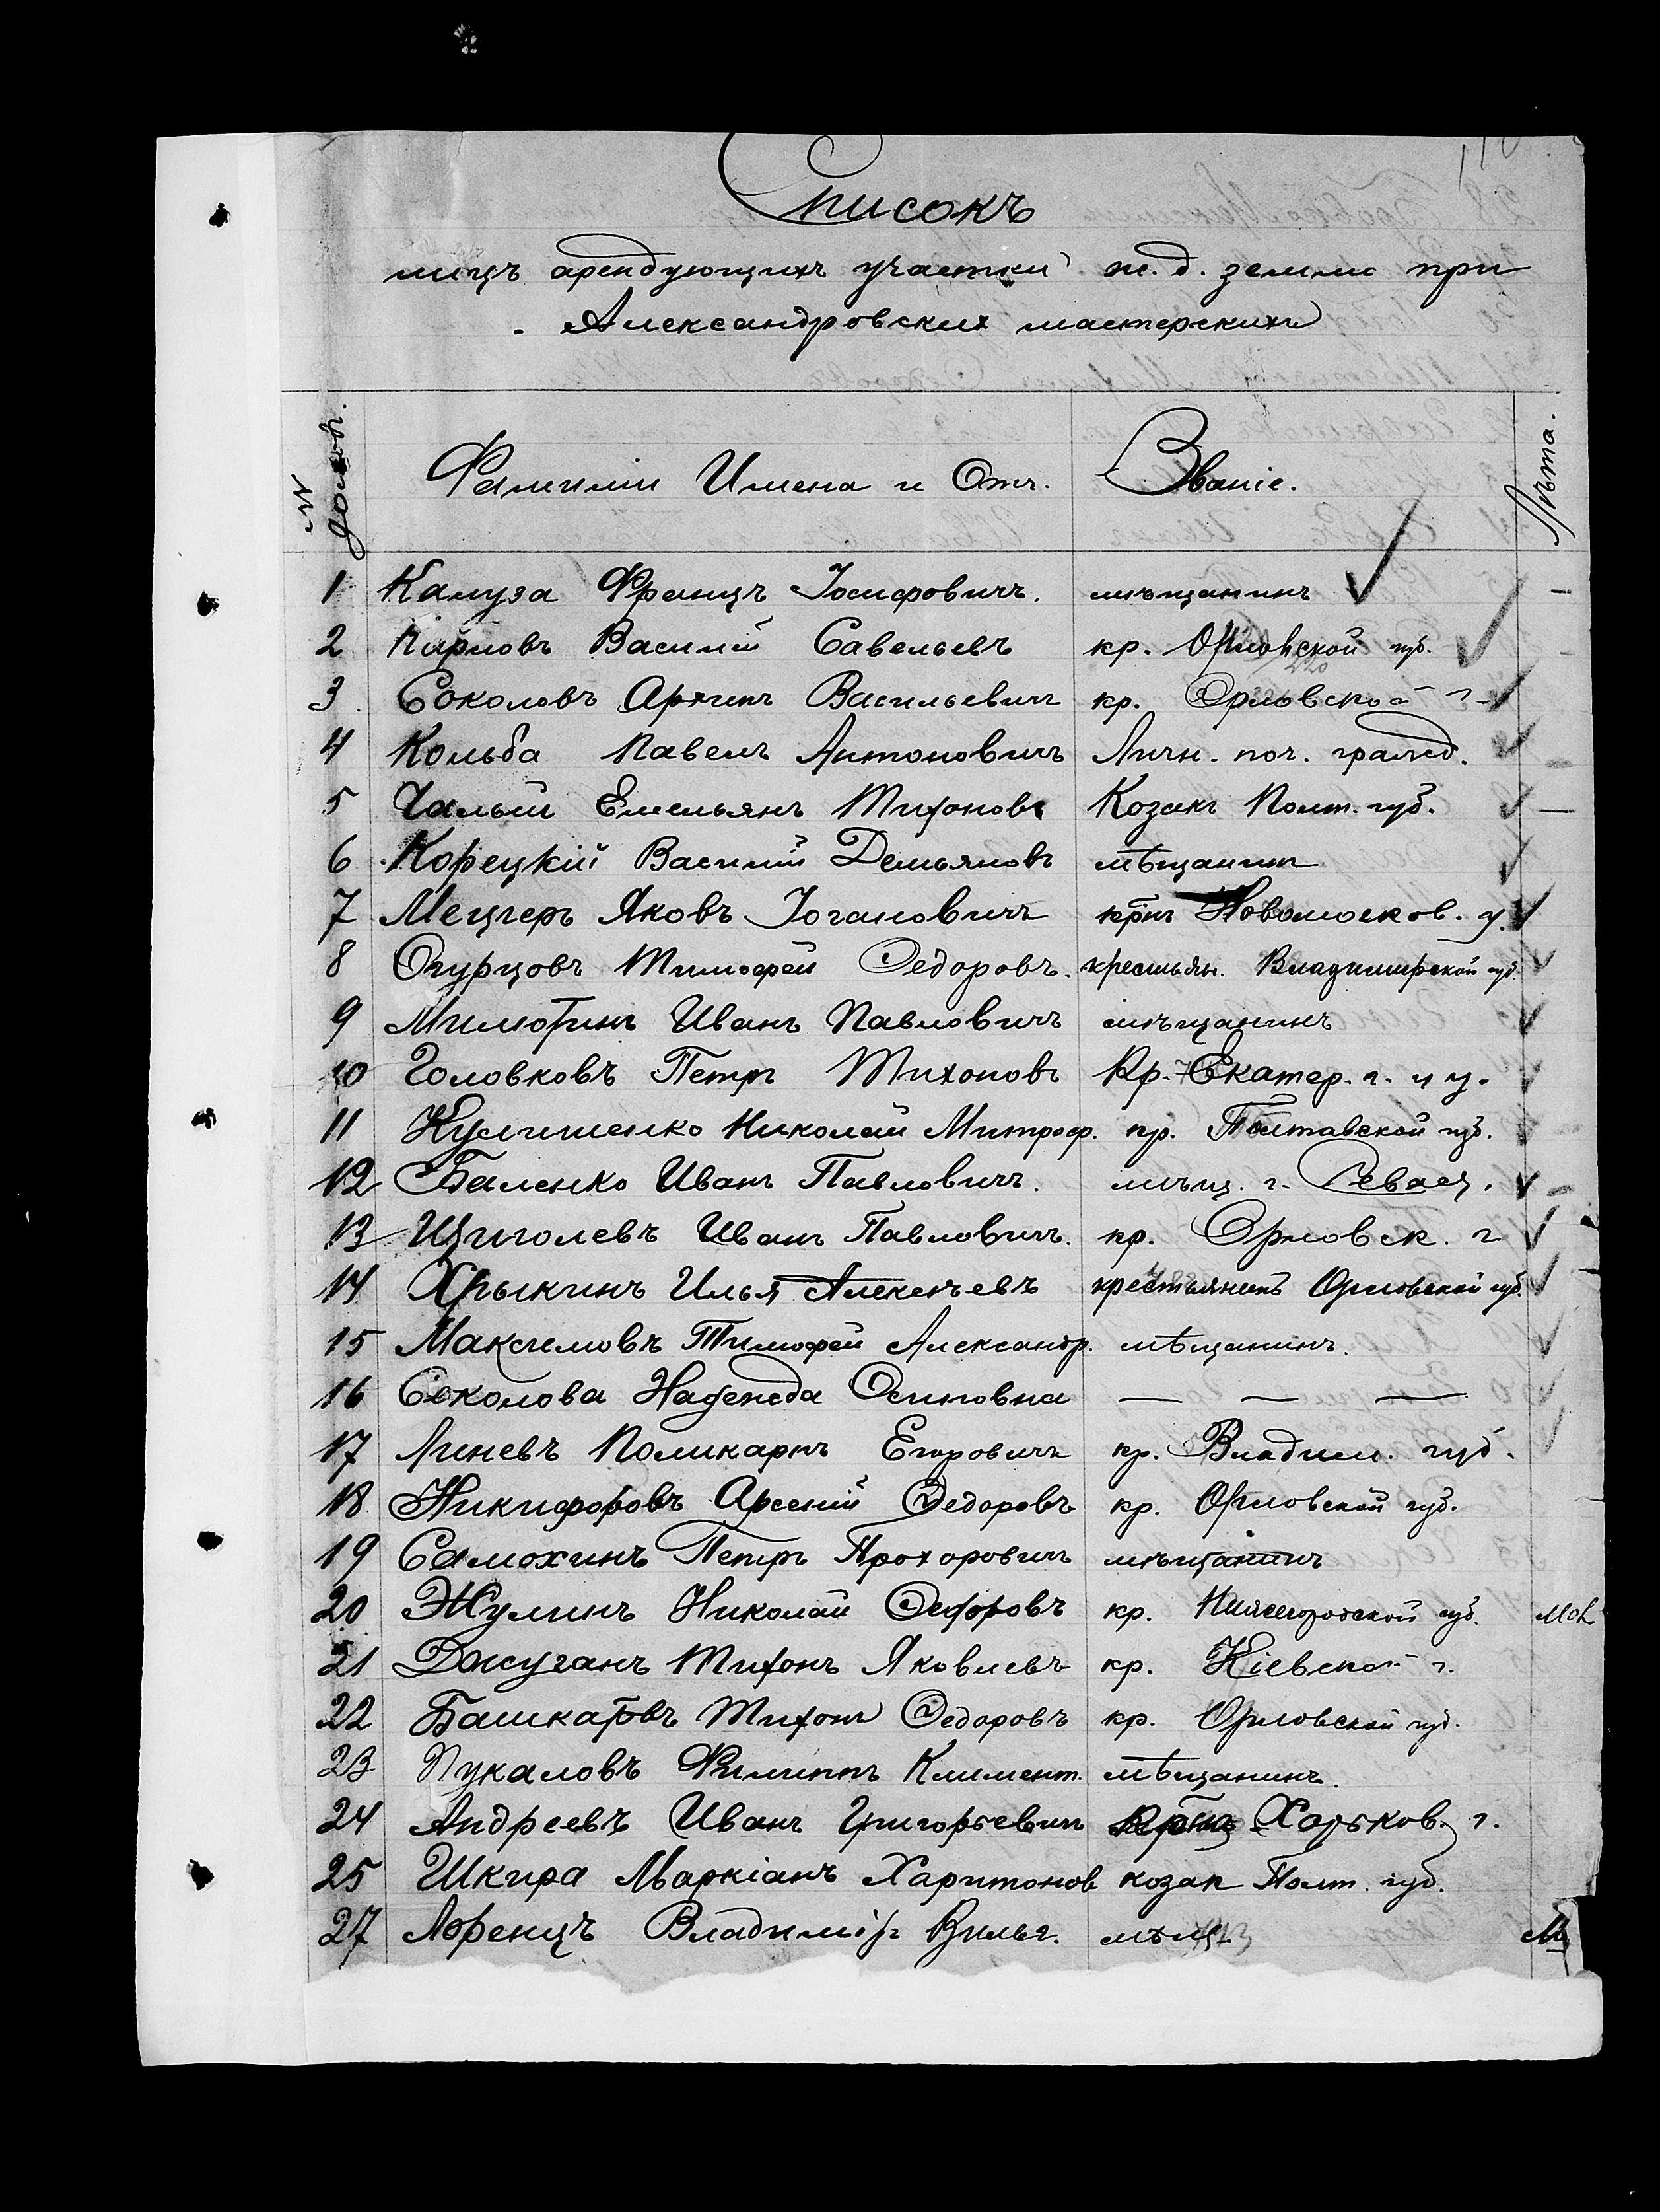 Списокъ
лицъ арендующихъ участки ж. д. земли при
Александровских мастерскихъ
№ домов. Фамиліи Имена и Отч. Званіе. Лѣта.
1 Калуза Францъ Іосифовичъ. мѣщанинъ
2 Карловъ Василій Савельевъ кр. Орловской губ.
3 Соколовъ Архипъ Васильевич кр. Орловской г.
4 Кольба Павелъ Антоновичъ Личн. поч. гражд.
5 Чалый Емельянъ Тихоновъ Козакъ Полт. губ.
6 Корецкій Василій Демьяновъ мѣщанин
7 Мецгеръ Яковъ Іогановичъ крнъ Новомосков. у.
8 Огурцовъ Тимофей Федоровъ. крестьян. Владимирской губ.
9 Милютинъ Иванъ Павловичъ мѣщанинъ
10 Головковъ Петръ Тихоновъ Кр. Екатер. г. и у.
11 Кулишенко Николай Митроф. кр. Полтавской губ.
12 Баленко Иванъ Павловичъ. мѣщ. г. Севаст.
13 Щиголевъ Иванъ Павловичъ. кр. Орловск. г
14 Хрыкинъ Илья Алексѣевъ крестьянинъ Орловской губ.
15 Максимовъ Тимофей Александр. мѣщанинъ.
16 Соколова Надежда Осиповна — — —
17 Линевъ Поликарпъ Егоровичъ кр. Владим. губ.
18 Никифоровъ Арсений Федоровъ кр. Орловской губ.
19 Самохинъ Петръ Прохорович мѣщанинъ
20 Жулинъ Николай Федоровъ кр. Нижегородской губ.
21 Джуганъ Тихонъ Яковлевъ кр. Кіевской г.
22 Башкатовъ Тихон Федоровъ кр. Орловской губ.
23 Пукаловъ Филиппъ Климент. мѣщанинъ.
24 Андреевъ Иванъ Григорьевич крнъ Харьков. г.
25 Шкира Маркіанъ Харитонов козак Полт. губ.
27 Лоренцъ Владимір Вильг. мѣщ